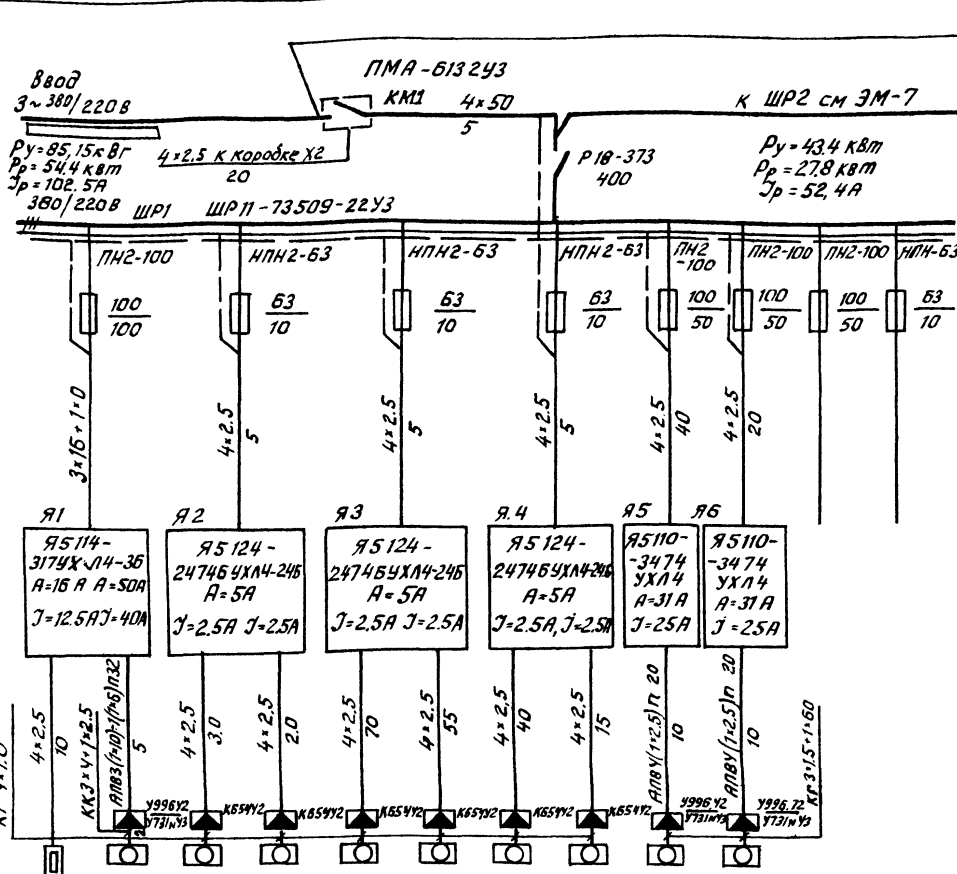 ПМА-6132У3
Ввод
3~380/220В
КМ1
4×50
5
к ШР2 см ЭМ-7
Ру=85,15кВт
Рр=54.4 квт
Jр=102.5А
380/220В
4×2.5 к коробке Х2
20
Р18-373
400
Ру=43.4 квт
Рр=27.8 квт
Jр=52,4А
ШР1
ШР11-73509-22У3
ПН2-100
НПН2-63
НПН2-63
НПН2-63
ПН2
-100
ПН2-100
ПН2-100
НПН-63
100
100
63
10
63
10
63
10
100
50
100
50
100
50
63
10
3×16+1=0
4×2.5
5
4×2.5
5
4×2.5
5
4×2.5
40
4×2.5
20
Я1
Я5114-
317УХЛ4-36
А=16А А=50А
J=12.5А J=40А
Я2
Я5124-
2474БУХЛ4-24Б
А=5А
J=2.5А J=2.5А
Я3
Я5124-
2474БУХЛ4-24Б
А=5А
J=2.5А J=2.5А
Я.4
Я5124-
2474БУХЛ4-24Б
А=5А
J=2.5А, J=2.5А
Я5
Я5110-
-3474
УХЛ4
А=31А
J=25А
Я6
Я5110-
-3474
УХЛ4
А=31А
J=25А
4×2.5
10
ККЗ×4+1×2.5
АПВ3(1×10)-1(1×6)П32
5
4×2.5
3.0
4×2.5
2.0
4×2.5
70
4×2.5
55
4×2,5
40
4×2.5
15
АПВУ(1×2.5)П 20
10
АПВУ(1×2.5)П 20
10
КГ 3×1.5+1×60
У996У2
У731мУ3
К654У2
К654У2
К654У2
К654У2
К654У2
К654У2
У996У2
У731мУ3
У996.У2
У731мУ3